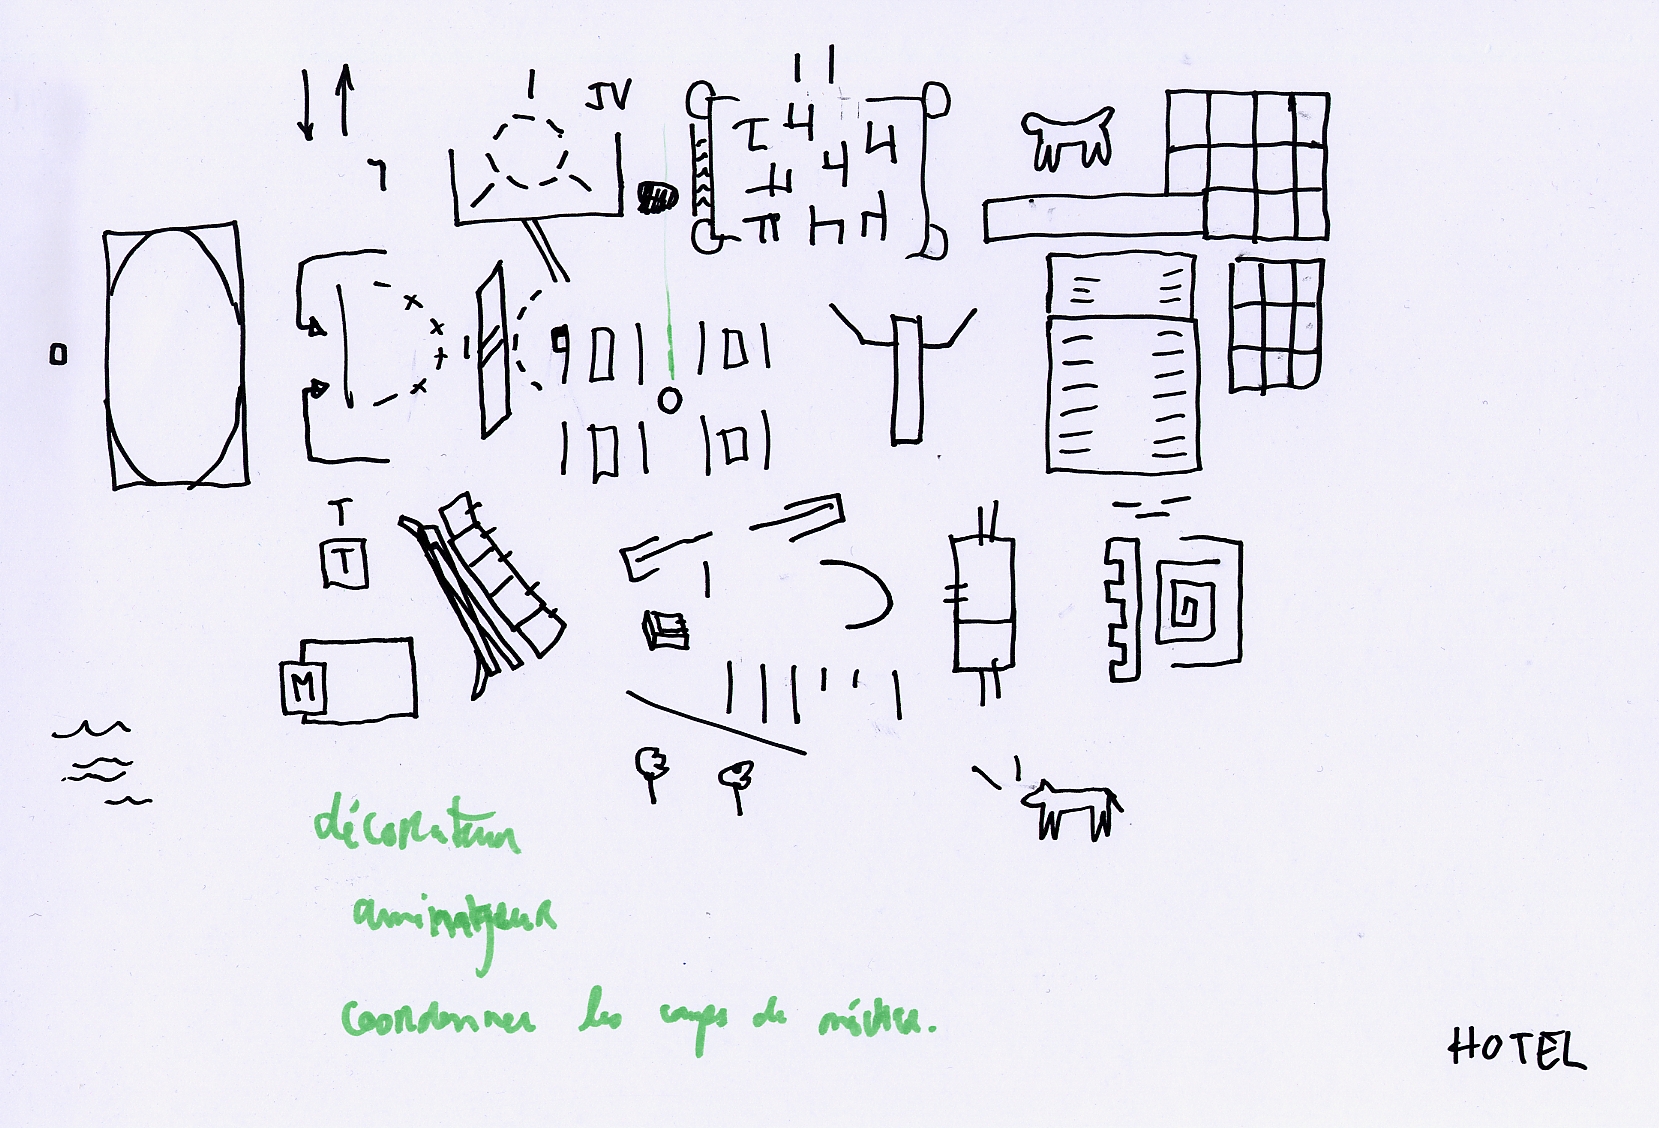 JV
T
T
M
décorateur
animateur
coordonner les corps de métier.
HOTEL